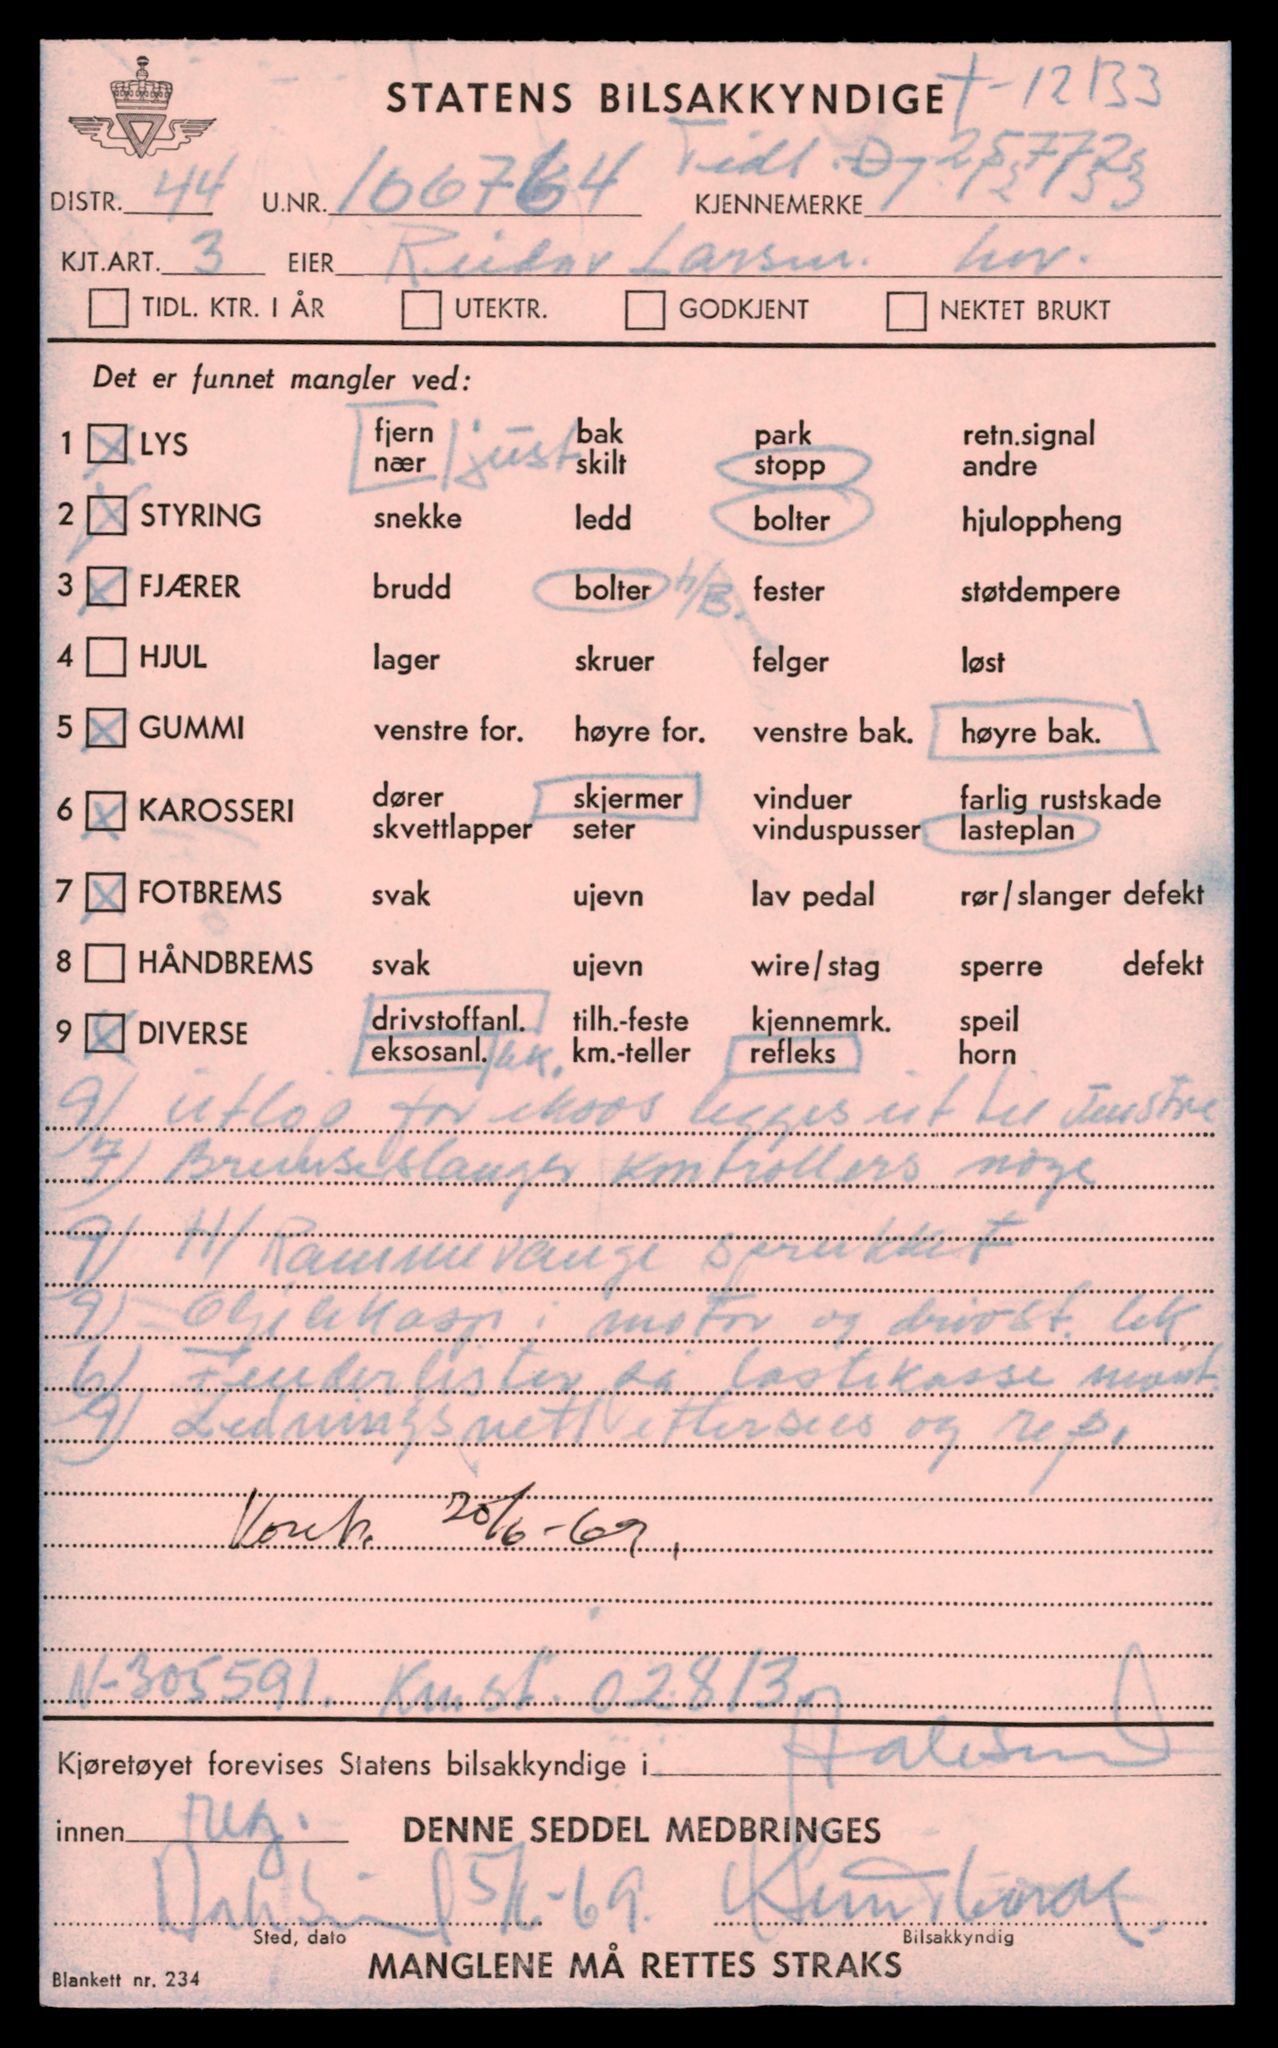 STATENS BILSAKKYNDIGE T-12133
Tidl.
DISTR. 44 U.NR. 106764 KJENNEMERKE
KJT.ART. 3 EIER Reidar Larsen. her.
TIDL. KTR. I ÅR UTEKTR. GODKJENT NEKTET BRUKT
Det er funnet mangler ved:
1 X LYS fjern bak park retn.signal
nær just skilt stopp andre
2 X STYRING snekke ledd bolter hjuloppheng
3 X FJÆRER brudd bolter h/B. fester støtdempere
4 HJUL lager skruer felger løst
5 X GUMMI venstre for. høyre for. venstre bak. høyre bak.
6 X KAROSSERI dører skjermer vinduer farlig rustskade
skvettlapper seter vinduspusser lasteplan
7 X FOTBREMS svak ujevn lav pedal rør/slanger defekt
8 HÅNDBREMS svak ujevn wire/stag sperre defekt
9 X DIVERSE drivstoffanl. tilh.-feste kjennemrk. speil
eksosanl. lek. km.-teller refleks horn
9) Utløp for eksos legges ut til venstre
7) Bremseslanger kontrollers nøye
9) H/ Rammevange sprukket
9) Oljelekasje i motor og drivst. lek
6) Fenderlister på lastekasse mont.
9) Ledningsnett ettersees og rep.
Kont. 20/6-69.
N-305591. Kmst. 02813.
Kjøretøyet forevises Statens bilsakkyndige i Aalesund
innen reg. DENNE SEDDEL MEDBRINGES
5/6-69.
Sted, dato Bilsakkyndig
MANGLENE MÅ RETTES STRAKS
Blankett nr. 234